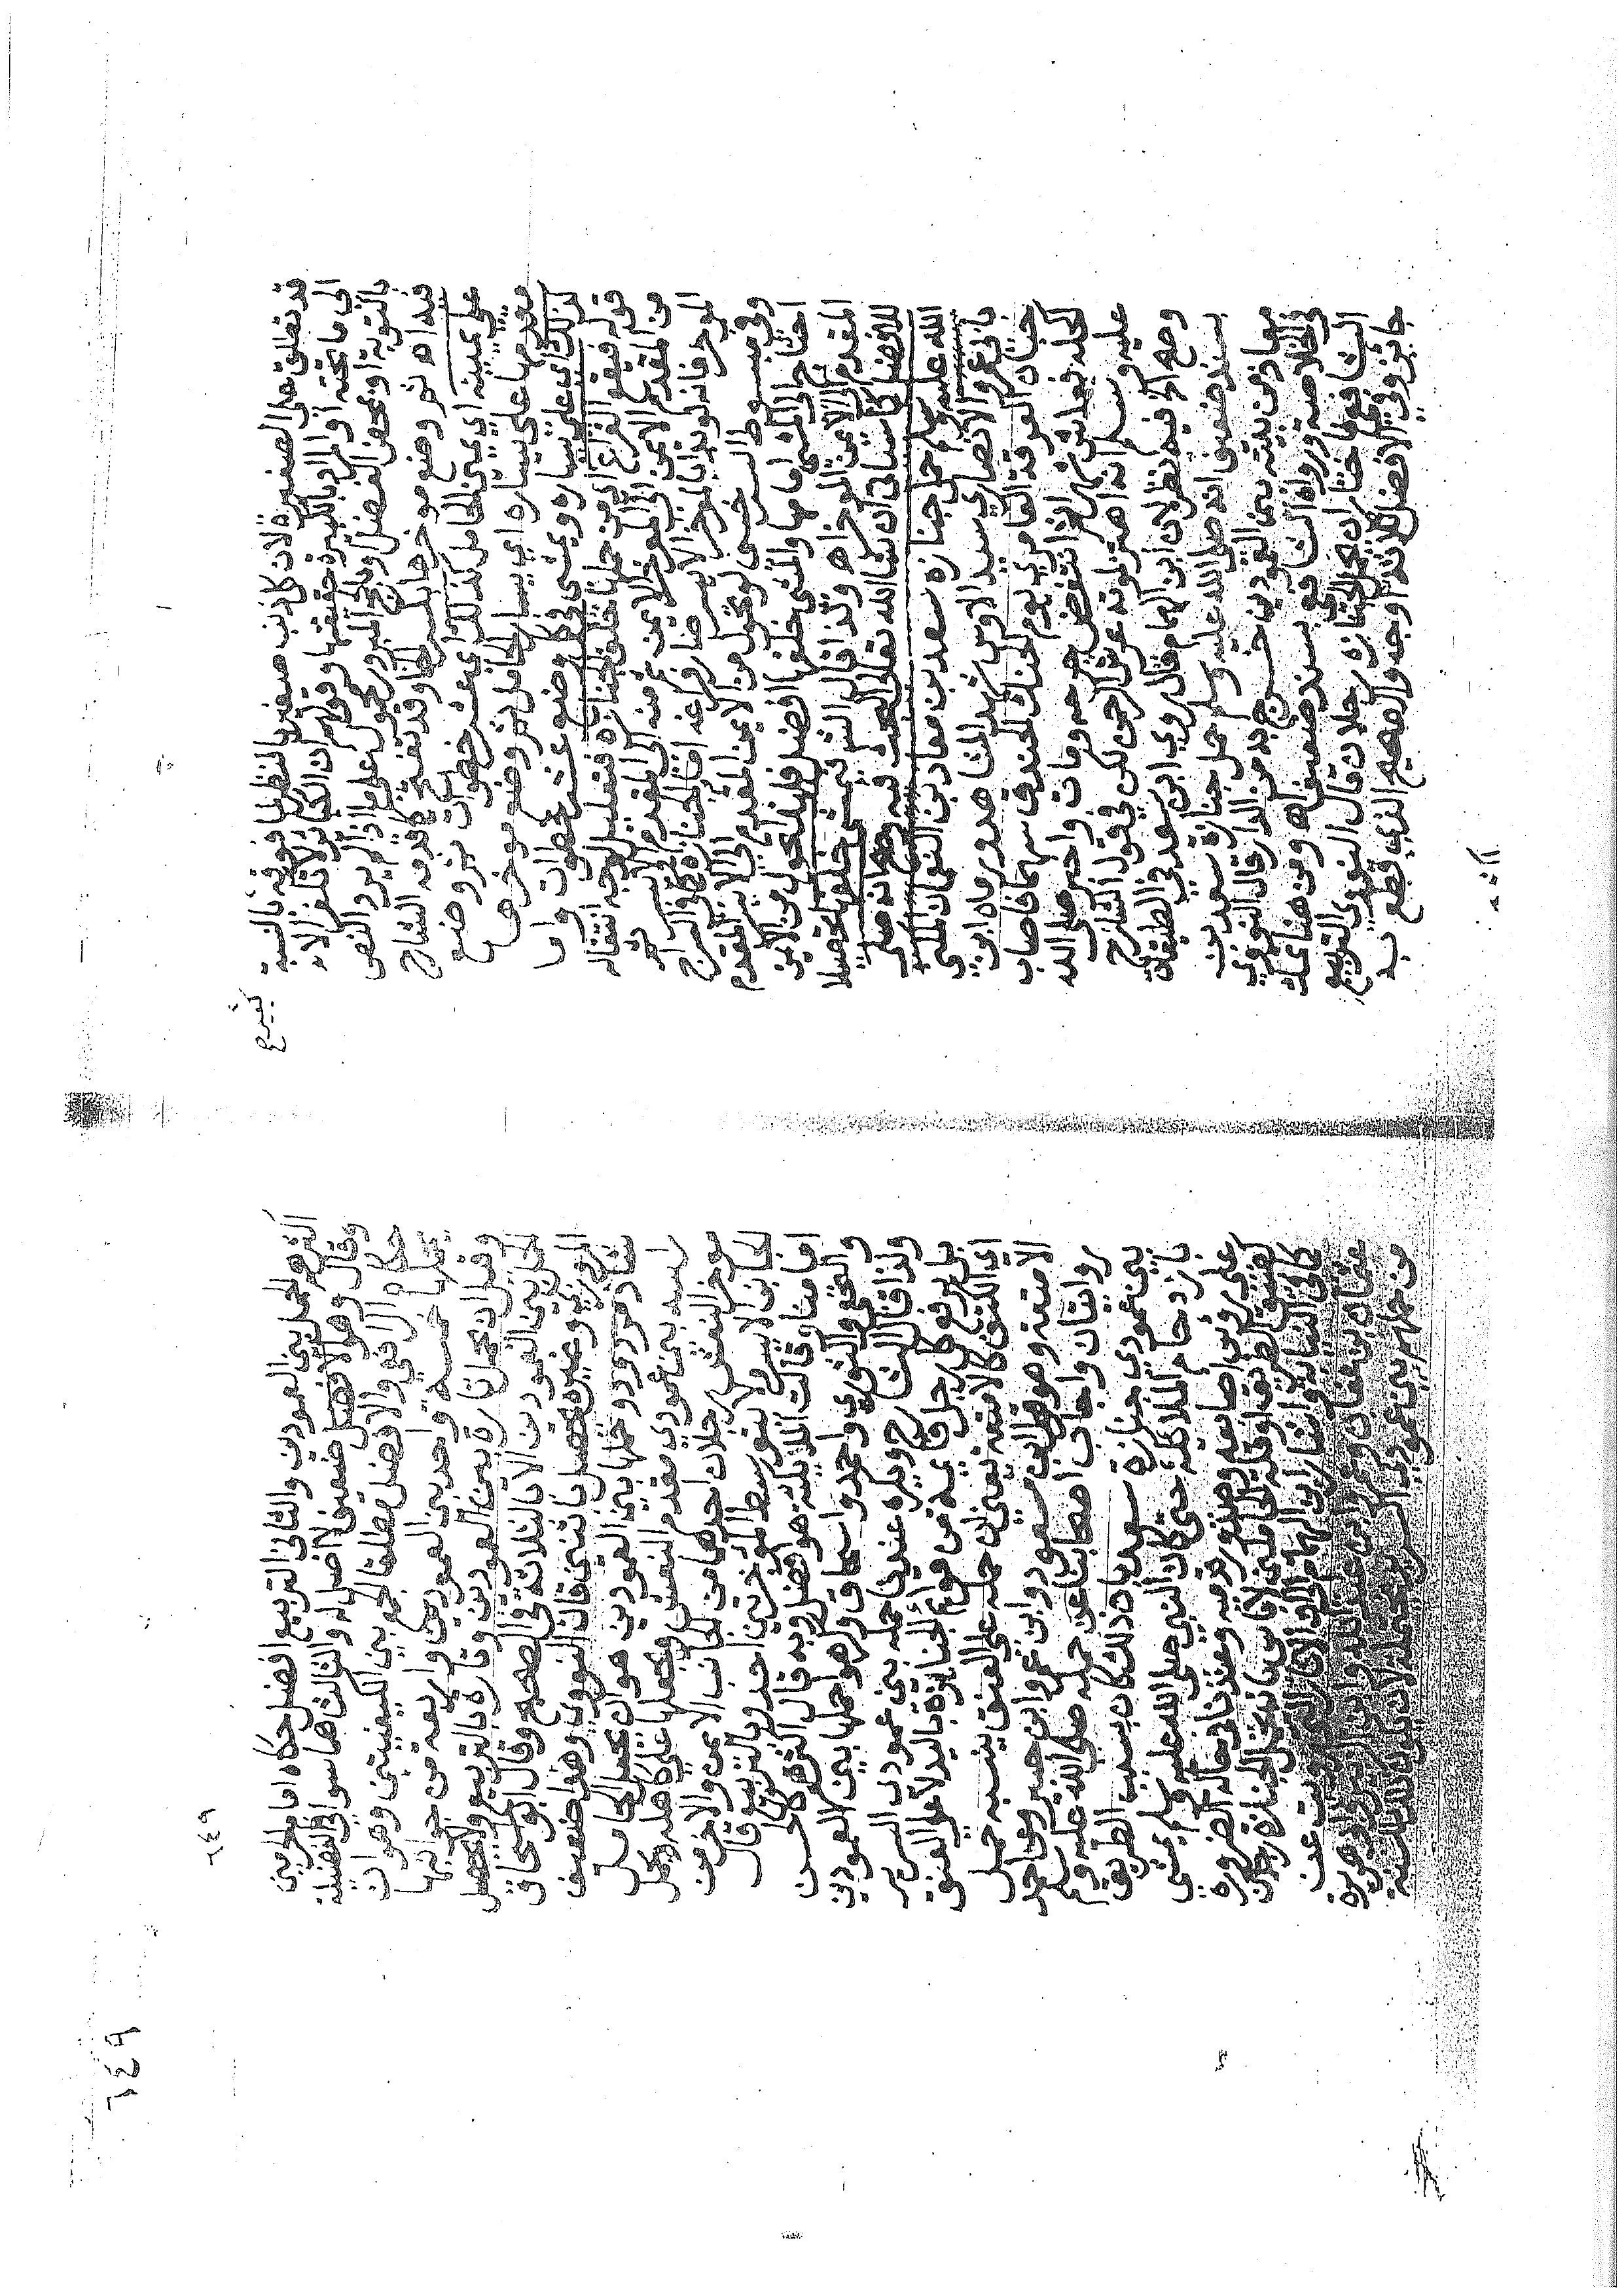 ٦٤٩
٦٤٩
قد تطلق على الصغيرة لان كل ذنب صغير بالنظر لما فوقه بالنسبة
الى ما تحته او المراد بالكبيرة حقيقتها وقولهم ان الكبائر لا تكفر الا
بالتوبة او بمحض الفضل وبالحج المبرور محمول على ما اذا لم يرد النص
فيه اه ثم وضع موخرها بكسر الخا وقد تفتح الشارح
على يمينه اي يمين الحامل كذلك اي عشر خطوات ثم وضع
مقدمها على يساره اي يسار الحامل ثم وضع موخرها
كذلك اي على يساره ويمشي في كل وضع عشر خطوات واما
قوله فيقع الفراغ اي من حملها خلف الجنازة فتعليل لوجه انتقاله
من المقدم الايمن الى الموخر الايمن ثم منه الى المقدم الايسر ثم
الموخر فانه لو بدا بالموخر الايسر صار فراغه امام الجنازة كذا في السراج
وفي مبسوط السرخسي لو تحول من الايمن المقدم الى الايسر المقدم
احتاج الى المشي امامها والمشي خلفها افضل فلهذا تحول من الايمن
المقدم الى الايمن الموخر اه ولذا قال ثم يمشي خلفها تحصيلا
للافضل كما سياتي ان شا الله تعالى البحث فيه وصح انه صلى
الله عليه وسلم حمل جنازه سعد بن معاذ بن النعمان المكنى
بابي عمرو الانصاري سيد الاوس شهد المشاهد رماه ابن
حبان العرقة العامري يوم الخندق سهما فاصاب
اكحله فعاش شهرا ثم انتقض جرحه ومات واخبر صلى الله
عليه وسلم انه اهتز لموته عرش الرحمن لكن في قول الشارح
وصح فيه نظر لان ابن الهمام قال روى ابن سعد في الطبقات
بسند ضعيف انه صلى الله عليه وسلم حمل جنازة سعد بن
معاذ من بيته بين العمودين حتى خرج به من الدار قال النووي
في الخلاصة ورواه الشافعي بسند ضعيف اه ومن هنا
الشافعي فاختار ان يحمل الجنازة رجلان قال النووي التربيع
جائز وفي الافضل ثلاثة اوجه والصحيح الذي قطع به
اكثرهم الحمل بين العمودين والثاني التربيع افضل حكاه امام الحرمين
وقال وهو ضعيف لا اصل له والثالث هما سوا في الفضيلة
حكاه الرافعي والافضل مطلقا الجمع بين الكيفيتين وهو ان
يحملها خمسة واحد بين العمودين واربعة من جوانبها
وقيل ان يحمل تارة بين العمودين وتارة بالتربيع ولا يحصل
الحمل بين العمودين الا بالثلاثة في الصحيح وقال ابو اسحاق
المروزي وغيره يحصل باثنين قال النووي وهذا ضعيف
شاذ مردود وحملها بين العمودين هو ان يجعل الحامل
راسه بين عمودي مقدم النعش ويجعلها على كاهله ويحمل
موخر النعش رجلان احدهما من الجانب الايمن والاخر من
الجانب الايسر ولا يتوسط الموخرتين احد وبالتربيع قال
امامنا وقالت المالكية هو افضل وبه قال اكثرهم كالحسن
والنخعي والثوري واحمد واسحاق وكرهوا حملها بين العمودين
ولذا قال الشارح ويكره عندنا حمله بين عمودي السرير
بل يرفع كل رجل قائمة من قوائم الجنازة باليد لا على العنق
اي الكتف كالامتعة يعني لان حمله على العنق يشبه حمل
الامتعة وهو قول ابن مسعود وابن عمر وابن جبير وعن احمد
روايتان واجاب اصحابنا عن حمله صلى الله عليه وسلم
بين عمودي جنازة سعد بان ذلك كان بسبب الطريق
بازدحام الملائكة حتى كان النبي صلى الله عليه وسلم يمشي
على روس اصابعه وصدور قدميه وعندنا في حالة الضرورة
لضيق الطريق او قلة الحاملين لا باس بان تحمل الجنازة رجلان
كما في النهاية واشار ابن الهمام الى ان الاثار التي رويت عن
عثمان بن عفان وابن الزبير وابي هريرة
من حملهم بين عمودي السرير محتملة لان يكون